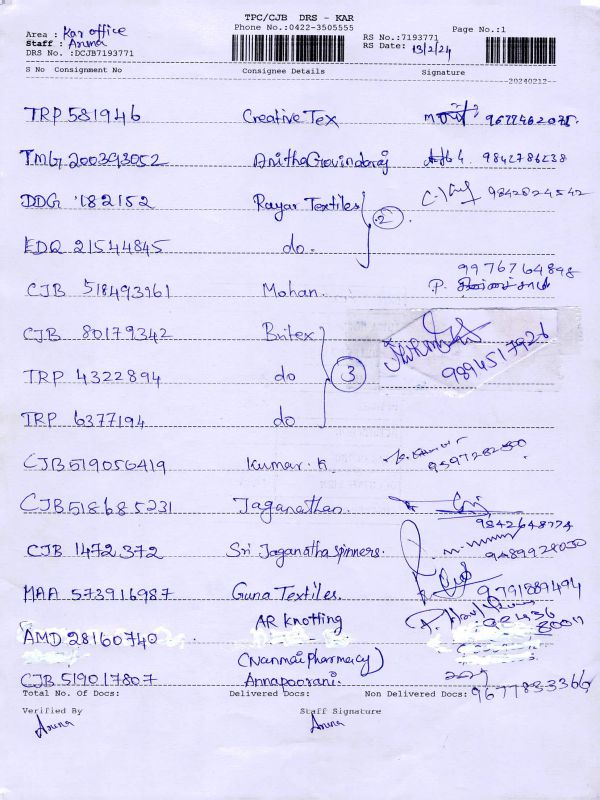 TPC/CJB DRS - KAR
Phone No.:0422-3505555
Page No.:1
Area : Kar office
RS No.:7193771
Staff : Aruna
RS Date: 13/2/24
DRS No. :DCJB7193771
S No Consignment No Consignee Details Signature
20240212
TRP 581946 Creative Tex
TMG 200393052 Anitha Govindaraj 9842786238
DDG 182152 Rayar Textiles 2 9842824542
EDQ 21544845 do.
9976764898
CJB 518493961 Mohan. P.
CJB 80179342 Britex
TRP 4322894 do 3 9894517926
TRP 6377194 do
CJB 519056419 Kumar. K
CJB 518685231 Jaganathan.
9842648774
CJB 1472372 Sri Jaganatha spinners. 9489928030
MAA 573916987 Guna Textiles. 9791889494
AMD 28160740 AR knotting
(Nanmai pharmacy)
CJB 519017807 Annapoorani.
Total No. Of Docs: Delivered Docs: Non Delivered Docs: 9677833366
Verified By Staff Signature
Aruna Aruna